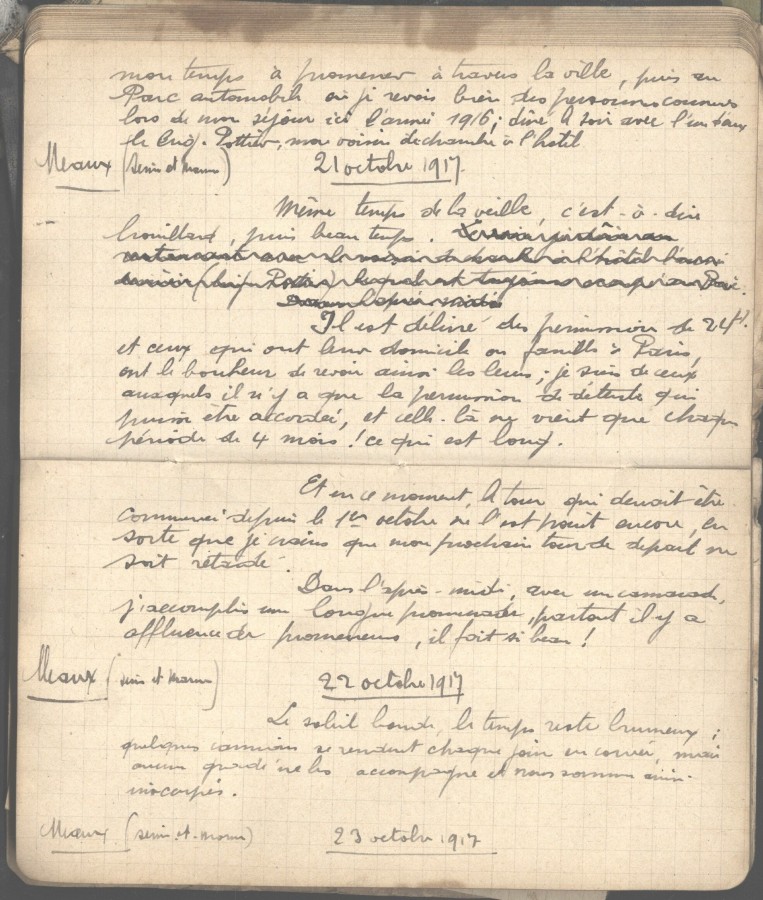 mon temps à promener à travers la ville, puis au
Parc automobile où je revois bien des personnes connues
lors de mon séjour ici l'année 1916; dîné le soir avec l'un d'eux
le Brig. Pottier, mon voisin de chambre à l'hôtel
Meaux (Seine et Marne) 21 octobre 1917.
Même temps de la veille, c'est-à-dire
brouillard, puis beau temps.
Il est délivré des permissions de 24h.
et ceux qui ont leur domicile ou famille à Paris,
ont le bonheur de revoir ainsi les leurs; je suis de ceux
auxquels il n'y a que la permission de détente qui
puisse être accordée, et celle-là ne vient que chaque
période de 4 mois! ce qui est long.
Et en ce moment, le tour qui devait être
commencé depuis le 1er octobre ne l'est point encore, en
sorte que je crains que mon prochain tour de départ ne
soit retardé.
Dans l'après-midi, avec un camarade,
j'accomplis une longue promenade, partout il y a
affluence de promeneurs, il fait si beau!
Meaux (seine et Marne) 22 octobre 1917
Le soleil boude, le temps reste brumeux;
quelques camions se rendent chaque jour en corvée, mais
aucun gradé ne les accompagne et nous sommes ainsi
inoccupés.
Meaux (seine-et-marne) 23 octobre 1917